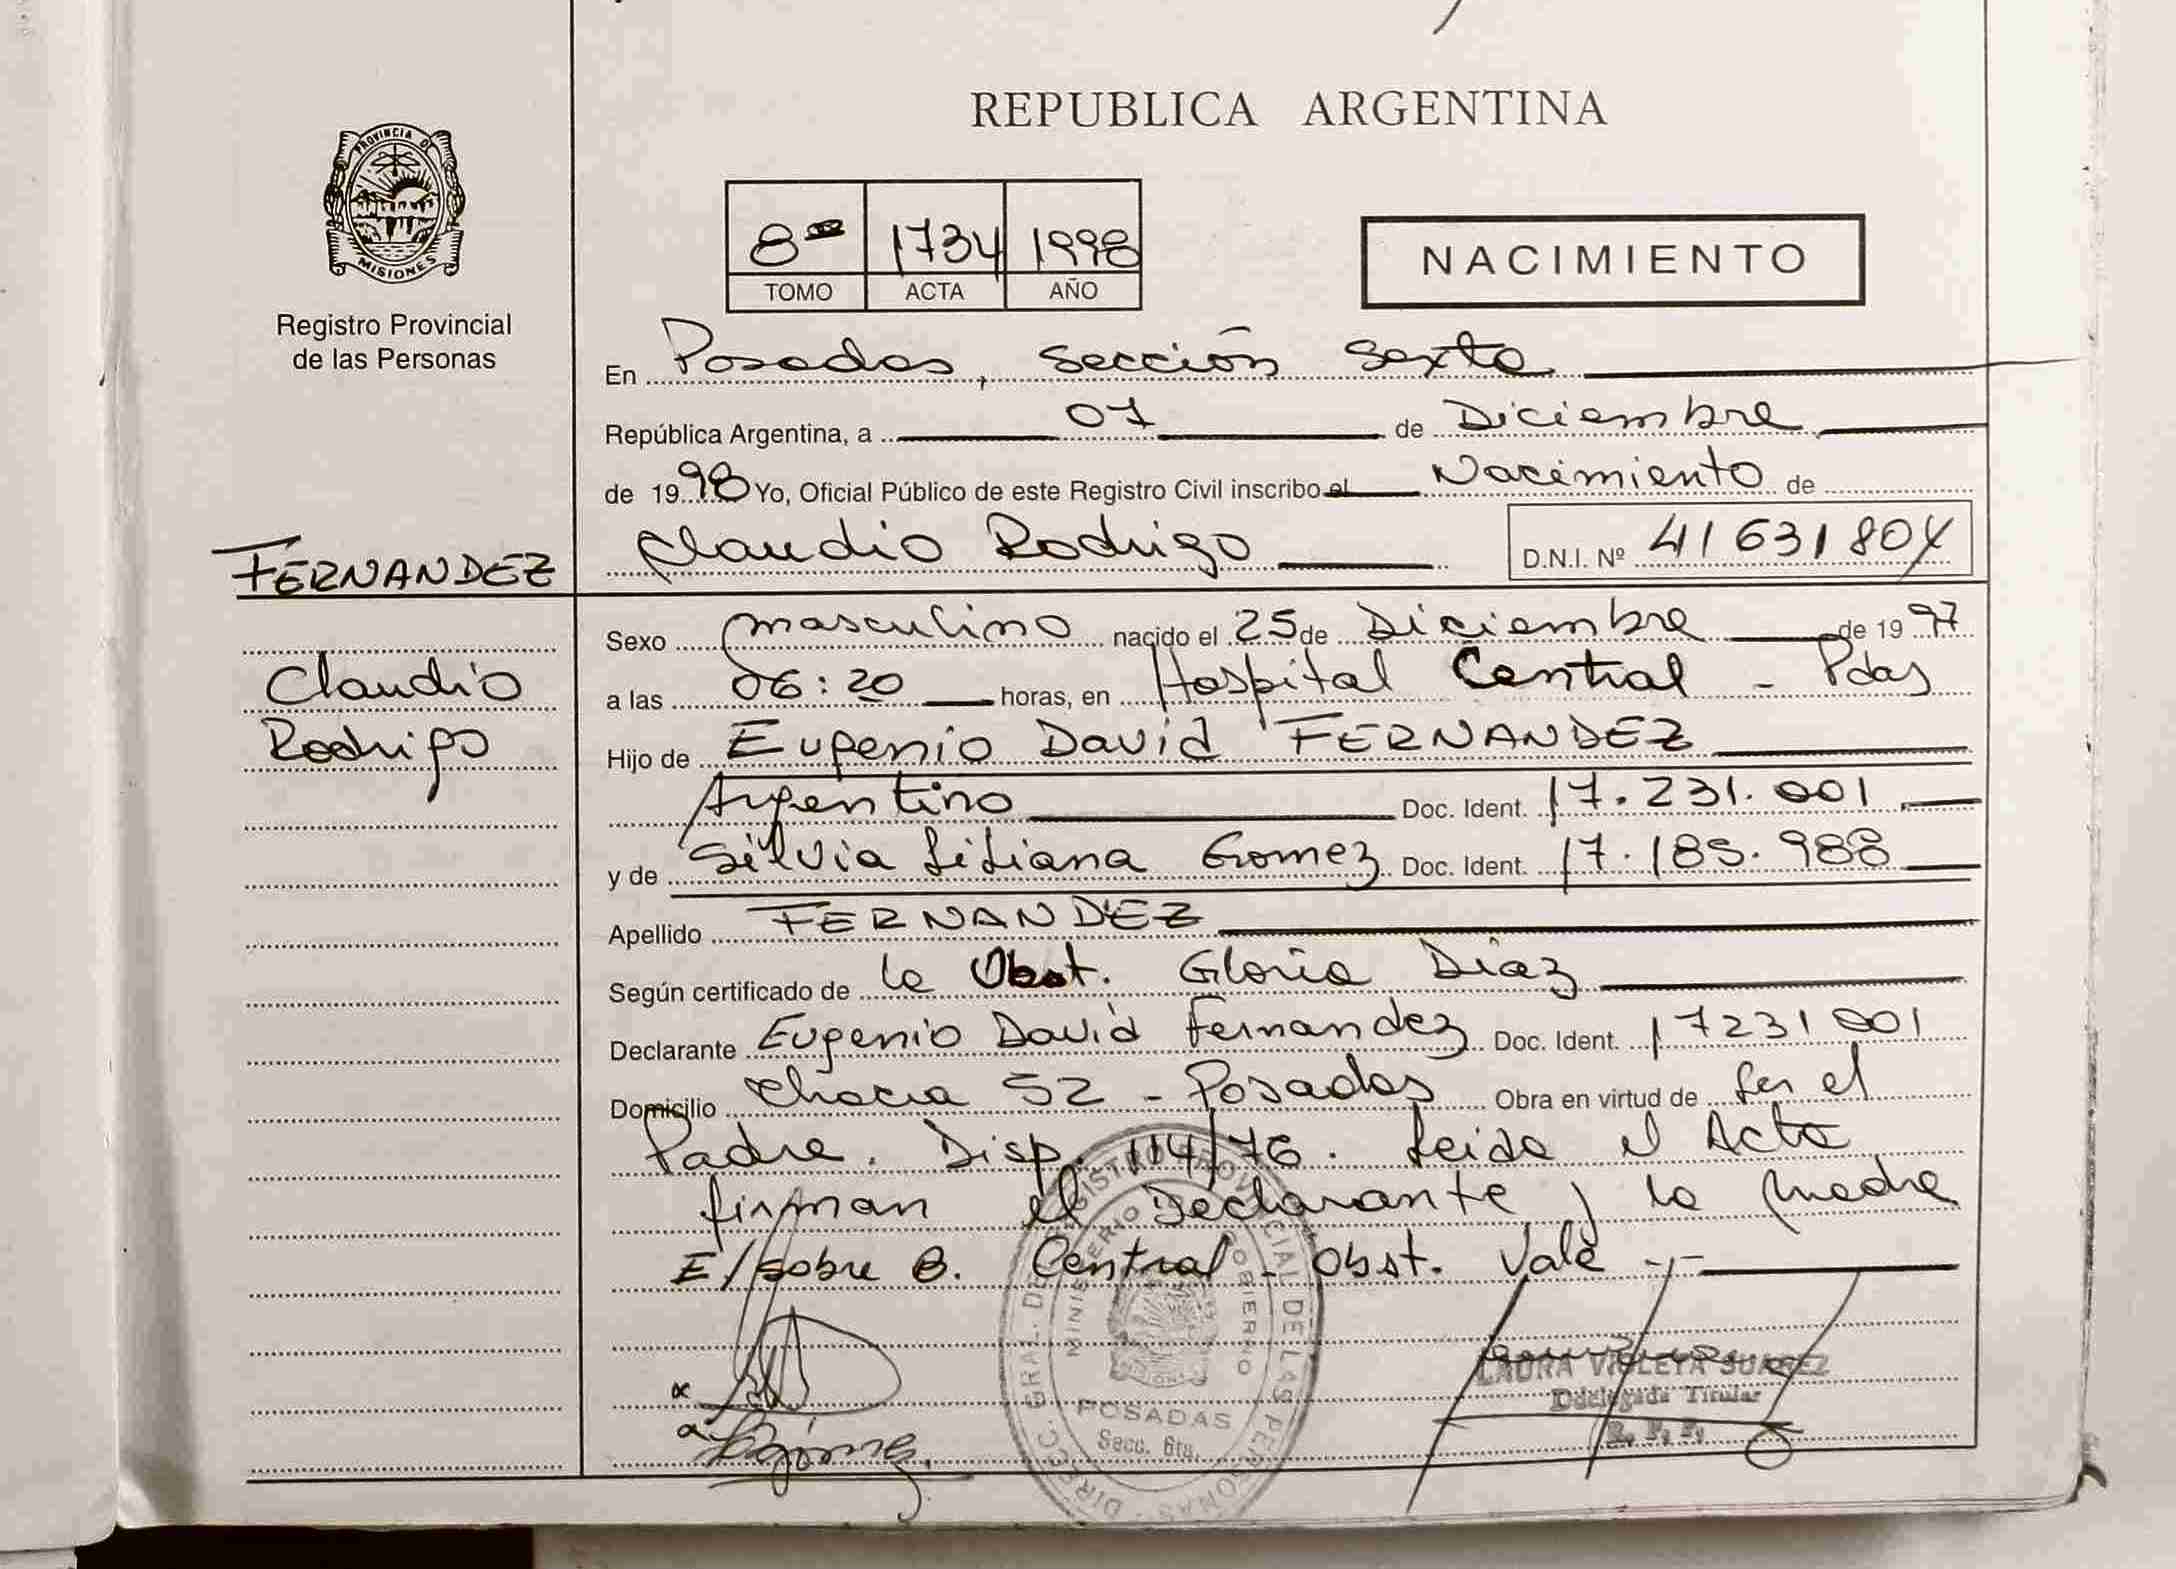 REPUBLICA ARGENTINA
PROVINCIA DE
MISIONES
Registro Provincial
de las Personas
8 1734 1998
TOMO ACTA AÑO
NACIMIENTO
En Posadas, Sección Sexta
República Argentina, a 07 de Diciembre
de 1998 Yo, Oficial Público de este Registro Civil inscribo el Nacimiento de
Claudio Rodrigo D.N.I. Nº 41631804
FERNANDEZ
Claudio
Rodrigo
Sexo masculino nacido el 25 de Diciembre de 1997
a las 06:20 horas, en Hospital Central - Pdas
Hijo de Eugenio David FERNANDEZ
Argentino Doc. Ident. 17.231.001
y de Silvia Liliana Gomez Doc. Ident. 17.185.988
Apellido FERNANDEZ
Según certificado de la Obst. Gloria Diaz
Declarante Eugenio David Fernandez Doc. Ident. 17231001
Domicilio Chacra 52 - Posadas Obra en virtud de Ser el
Padre. Disp. 114/76. Leida el Acta
firman el Declarante y la Madre
E/sobre B. Central - Obst. Vale -
DIREC. GRAL. DEL REGISTRO PROVINCIAL DE LAS PERSONAS
MINISTERIO GOBIERNO
POSADAS
Secc. 6ta.
LAURA VIOLETA SUAREZ
Delegada Titular
R. P. P.